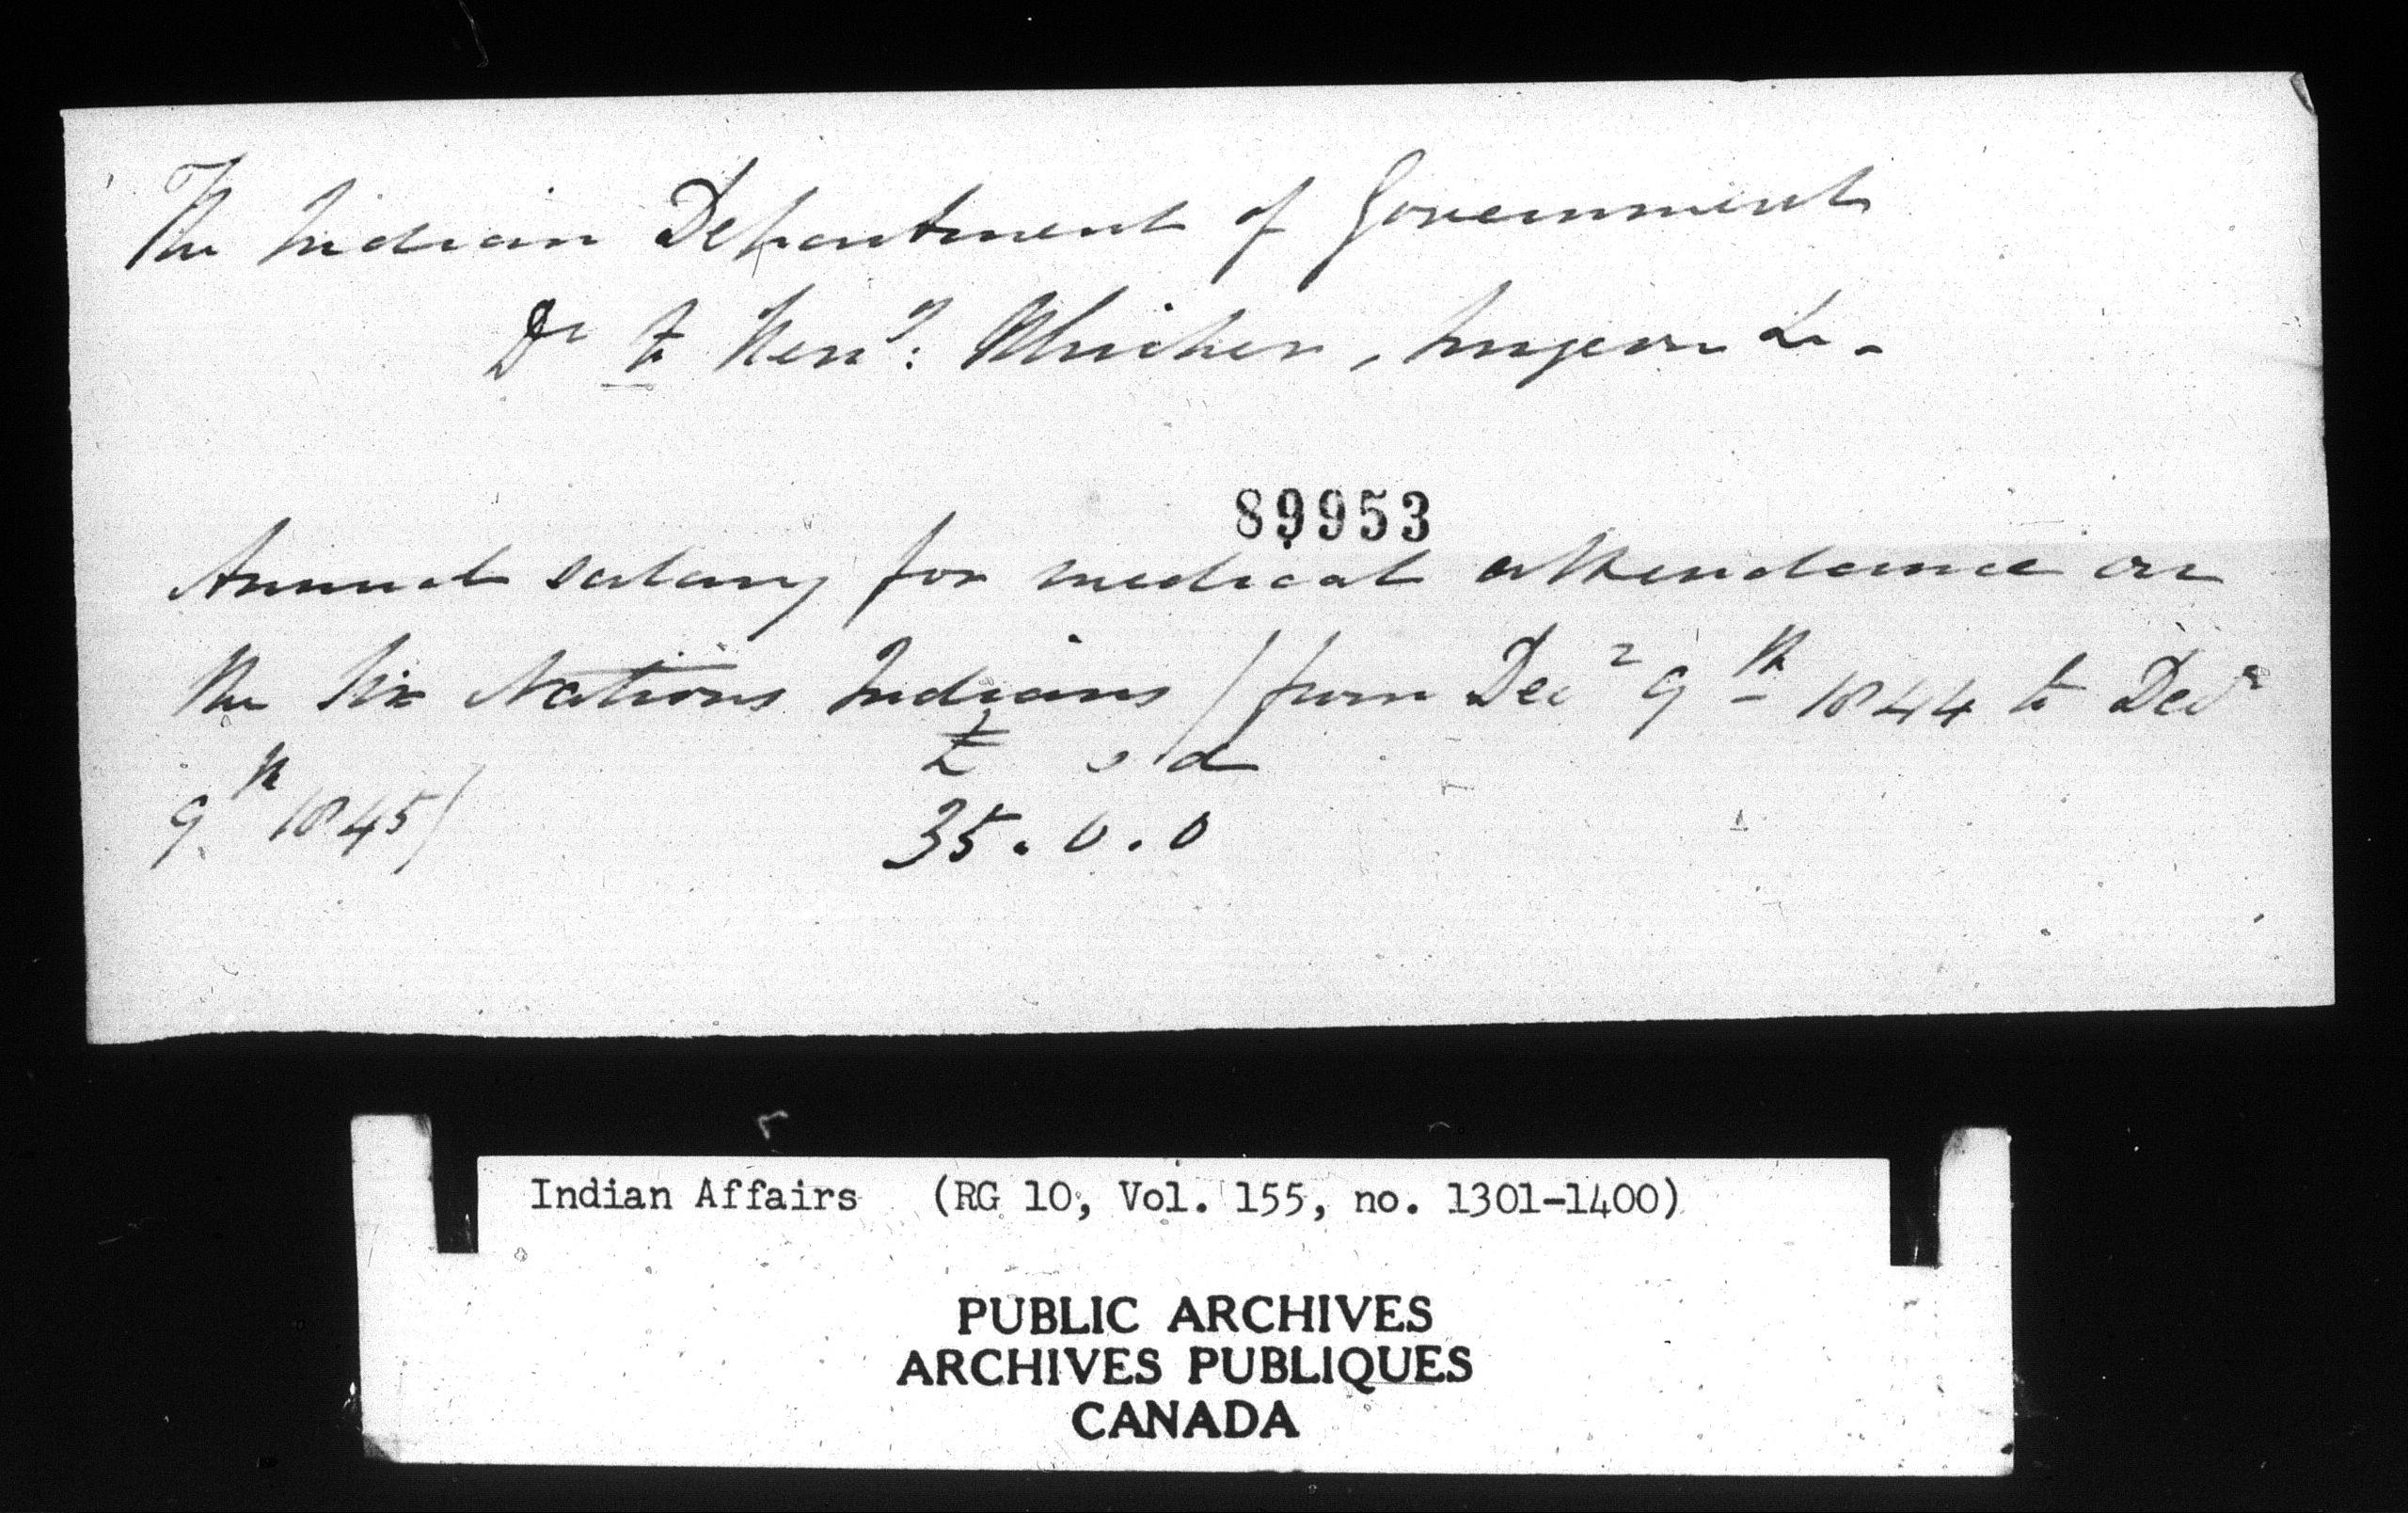 The Indian Department of Government
Dr to Heny: , Surgeon &c -
89953
Annual salary for medical attendance on
the Six Nations Indians (from Decr 9th 1844 to Decr
£ s d
9th 1845) 35 . 0 . 0
Indian Affairs (RG 10, Vol. 155, no. 1301-1400)
PUBLIC ARCHIVES
ARCHIVES PUBLIQUES
CANADA